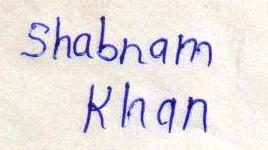 Shabnam
Khan